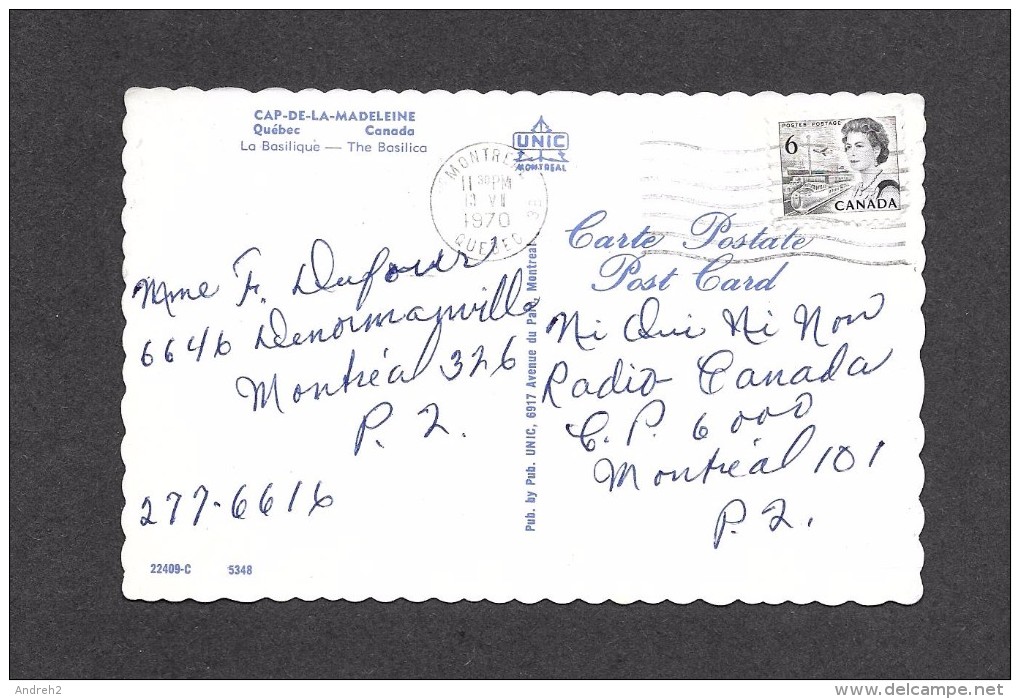 CAP-DE-LA-MADELEINE
Québec Canada
La Basilique — The Basilica
UNIC
MONTREAL
MONTREAL
11 30 PM
VII
1970
QUEBEC
POSTES POSTAGE
6
CANADA
Carte Postale
Post Card
Mme F. Dufour
6646 Denormanville
Montréal 326
P. Q.
277-6616
22409-C 5348
Pub. by Pub. UNIC, 6917 Avenue du Parc, Montreal
Ni Oui Ni Non
Radio-Canada
C. P. 6000
Montréal 101
P. Q.
Andreh2
www.delcampe.net